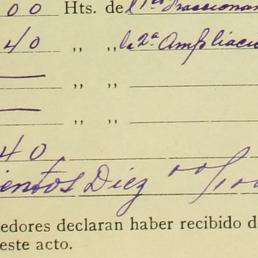 00 Hts. de l 1er Fraccionam
40 " " la 2a Ampliació
" "
" "
40
ientos Diez
edores declaran haber recibido d
este acto.